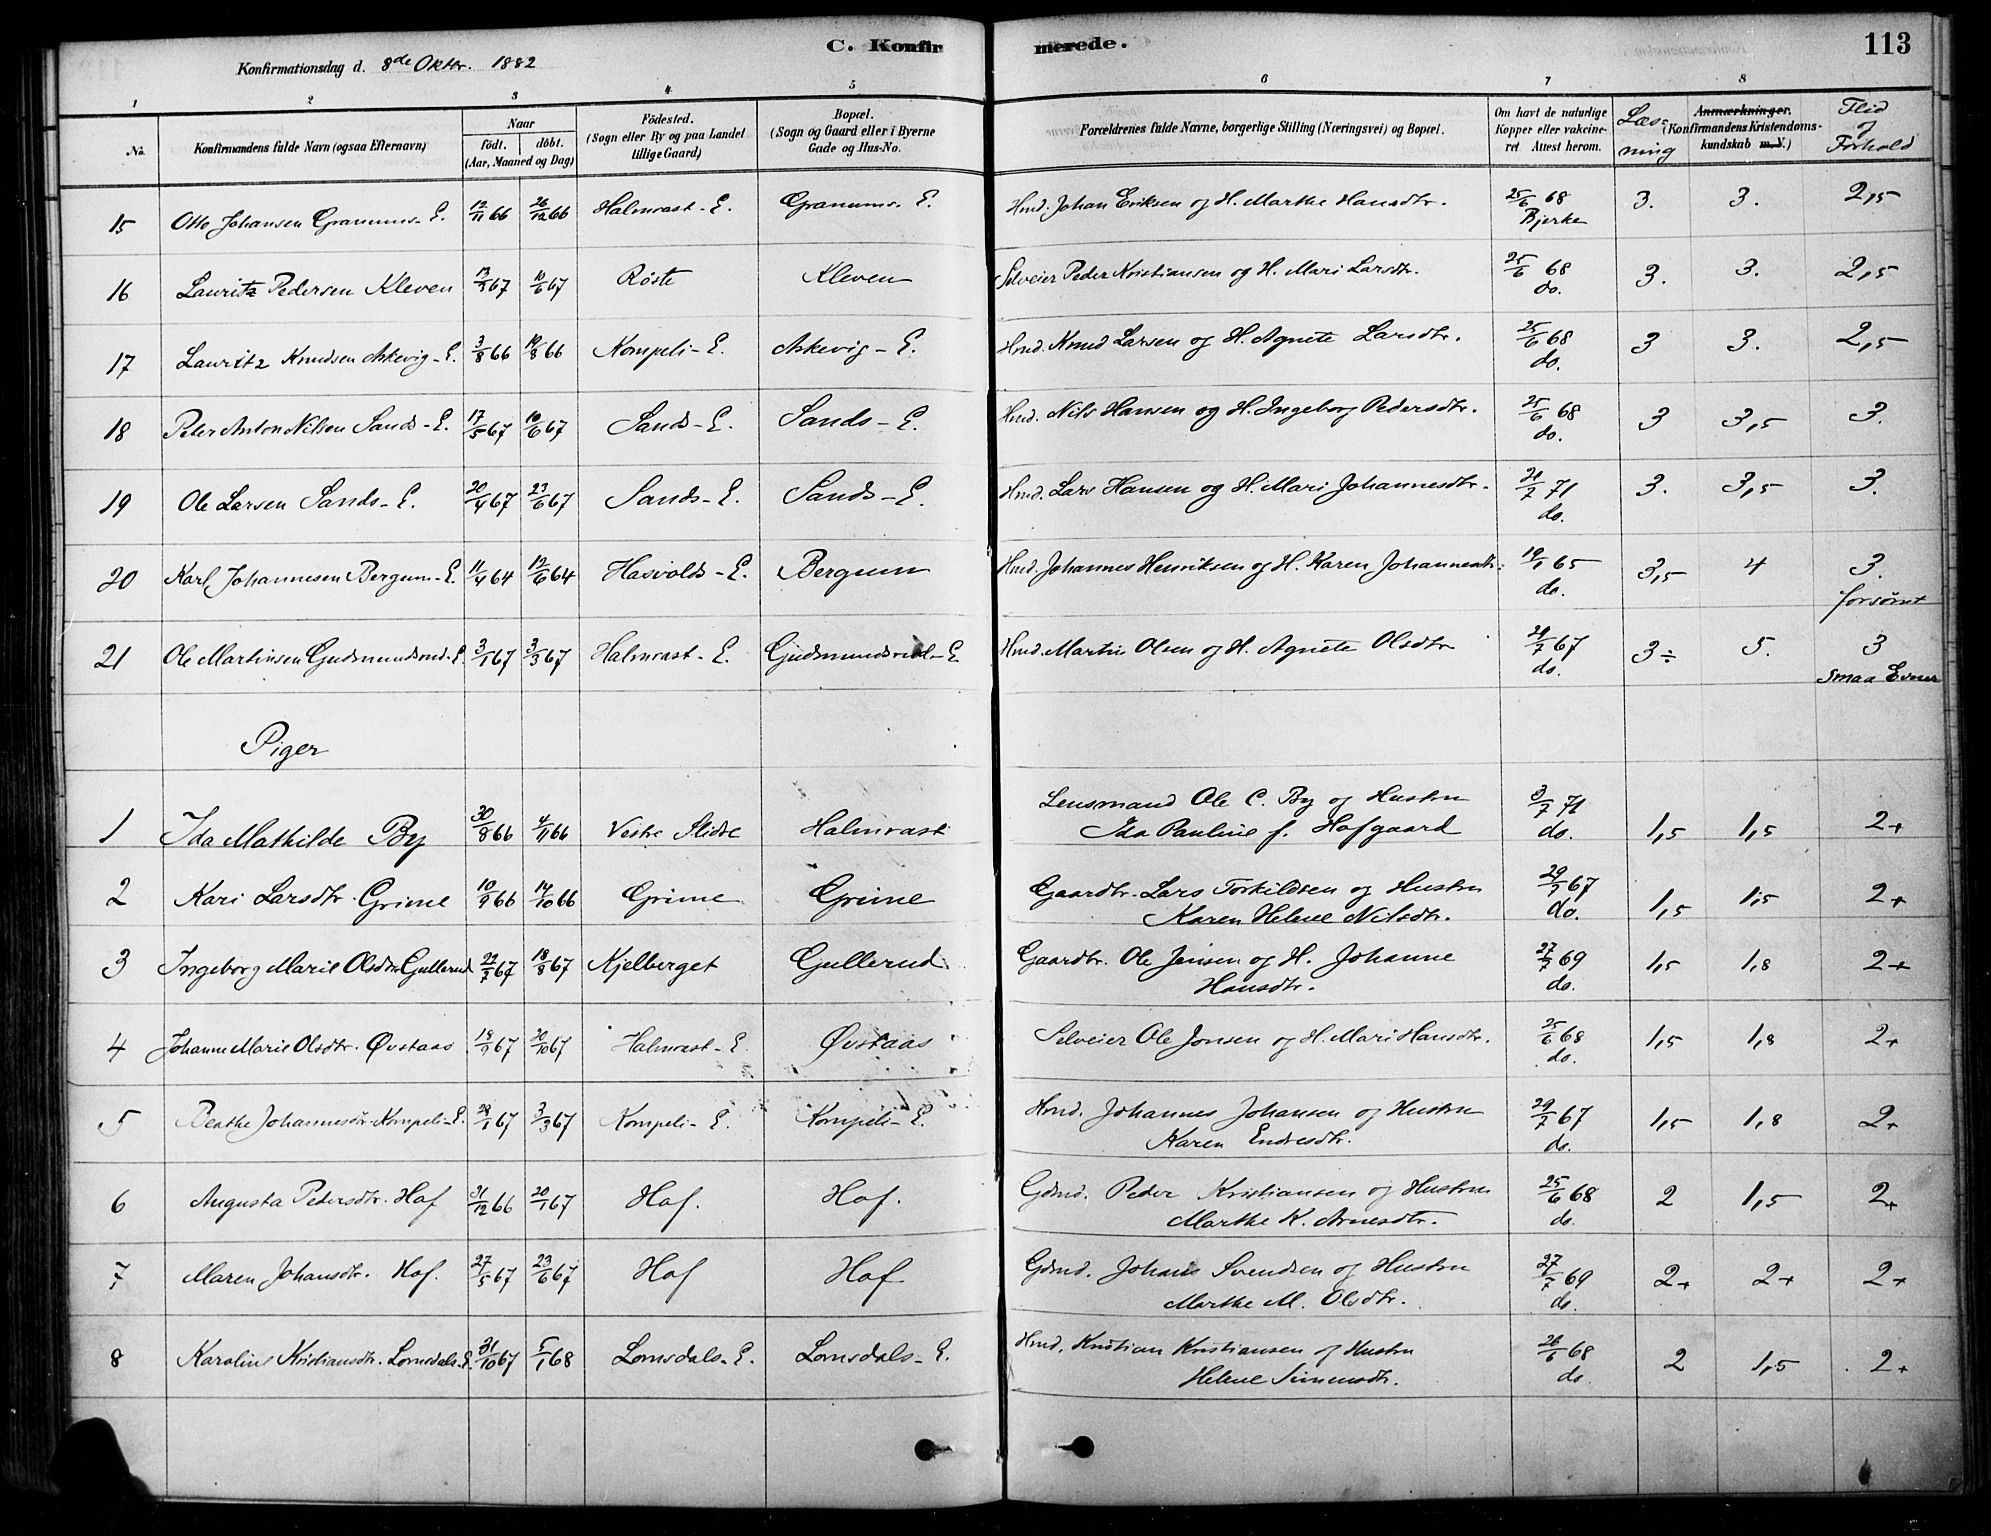 C. Konfirmerede. 113
Konfirmationsdag d. 8de Oktbr. 1882
1 2 3 4 5 6 7 8
No. Konfirmandens fulde Navn (ogsaa Efternavn) Naar født. døbt. (Aar, Maaned og Dag) Fødested. (Sogn eller By og paa Landet tillige Gaard) Bopæl. (Sogn og Gaard eller i Byerne Gade og Hus-No. Forældrenes fulde Navne, borgerlige Stilling (Næringsvei) og Bopæl. Om havt de naturlige Kopper eller vakcineret. Attest herom. Læsning Anmærkninger. (Konfirmandens Kristendomskundskab m. V.) Flid og Forhold
15 Otto Johansen Granums-E. 12/11 66 26/12 66 Halmrast-E. Granums-E. Hmd. Johan Eriksen og H. Marthe Hansdtr. 25/6 68 Bjerke 3. 3. 2,5
16 Lauritz Pedersen Kleven 13/3 67 10/6 67 Røste Kleven Selveier Peder Kristiansen og H. Mari Larsdtr. 25/6 68 do. 3. 3. 2,5
17 Lauritz Knudsen Askevig-E. 3/8 66 19/8 66 Kompeli-E. Askevig-E. Hmd. Knud Larsen og H. Agnete Larsdtr. 25/6 68 do. 3 3. 2,5
18 Peter Anton Nilsen Sands-E. 17/5 67 10/6 67 Sands-E. Sands-E. Hmd. Nils Hansen og H. Ingeborg Pedersdtr. 25/6 68 do. 3 3,5 3.
19 Ole Larsen Sands-E. 20/4 67 23/6 67 Sands-E. Sands-E. Hmd. Lars Hansen og H. Mari Johannesdtr. 21/7 71 do. 3. 3,5 3.
20 Karl Johannesen Bergum-E. 11/4 64 12/6 64 Hasvolds-E. Bergum Hmd. Johannes Henriksen og H. Karen Johannesdtr. 19/1 65 do. 3,5 4 3. forsømt
21 Ole Martinsen Gudsmundsrud-E. 3/1 67 3/3 67 Halmrast-E. Gudsmundsrud-E. Hmd. Martin Olsen og H. Agnete Olsdtr 29/7 67 do. 3÷ 5. 3 smaa Evner
Piger
1 Ida Mathilde By 30/8 66 4/11 66 Vestre Slidre Halmrast Lensmand Ole C. By og Hustru Ida Pauline f. Hofgaard 3/7 71 do. 1,5 1,5 2+
2 Kari Larsdtr. Grime 10/9 66 14/10 66 Grime Grime Gaardbr. Lars Torkildsen og Hustru Karen Helene Nilsdtr. 29/7 67 do. 1,5 1,5 2+
3 Ingeborg Marie Olsdtr Gullerud 22/7 67 18/8 67 Kjelberget Gullerud Gaardbr. Ole Jensen og H. Johanne Hansdtr. 27/7 69 do. 1,5 1,8 2+
4 Johanne Marie Olsdtr. Øvstaas 18/9 67 20/10 67 Halmrast-E. Øvstaas Selveier Ole Jonsen og H. Mari Hansdtr. 25/6 68 do. 1,5 1,8 2+
5 Berthe Johannesdtr. Kompeli-E. 28/1 67 3/3 67 Kompeli-E. Kompeli-E. Hmd. Johannes Johansen og Hustru Karen Endresdtr. 29/7 67 do. 1,5 1,8 2+
6 Augusta Pedersdtr. Hof 31/12 66 20/1 67 Hof. Hof. Gdmd. Peder Kristiansen og Hustru Marthe K. Arnesdtr. 25/6 68 do. 2 1,5 2+
7 Maren Johansdtr. Hof. 27/5 67 23/6 67 Hof Hof Gdmd. Johans Svendsen og Hustru Marthe M. Olsdtr. 27/7 69 do. 2+ 2+ 2+
8 Karoline Kristiansdtr. Lomsdals-E. 31/10 67 5/1 68 Lomsdals-E. Lomsdals-E. Hmd. Kristian Kristiansen og Hustru Helene Simensdtr. 26/6 68 do 2 1,5 2+